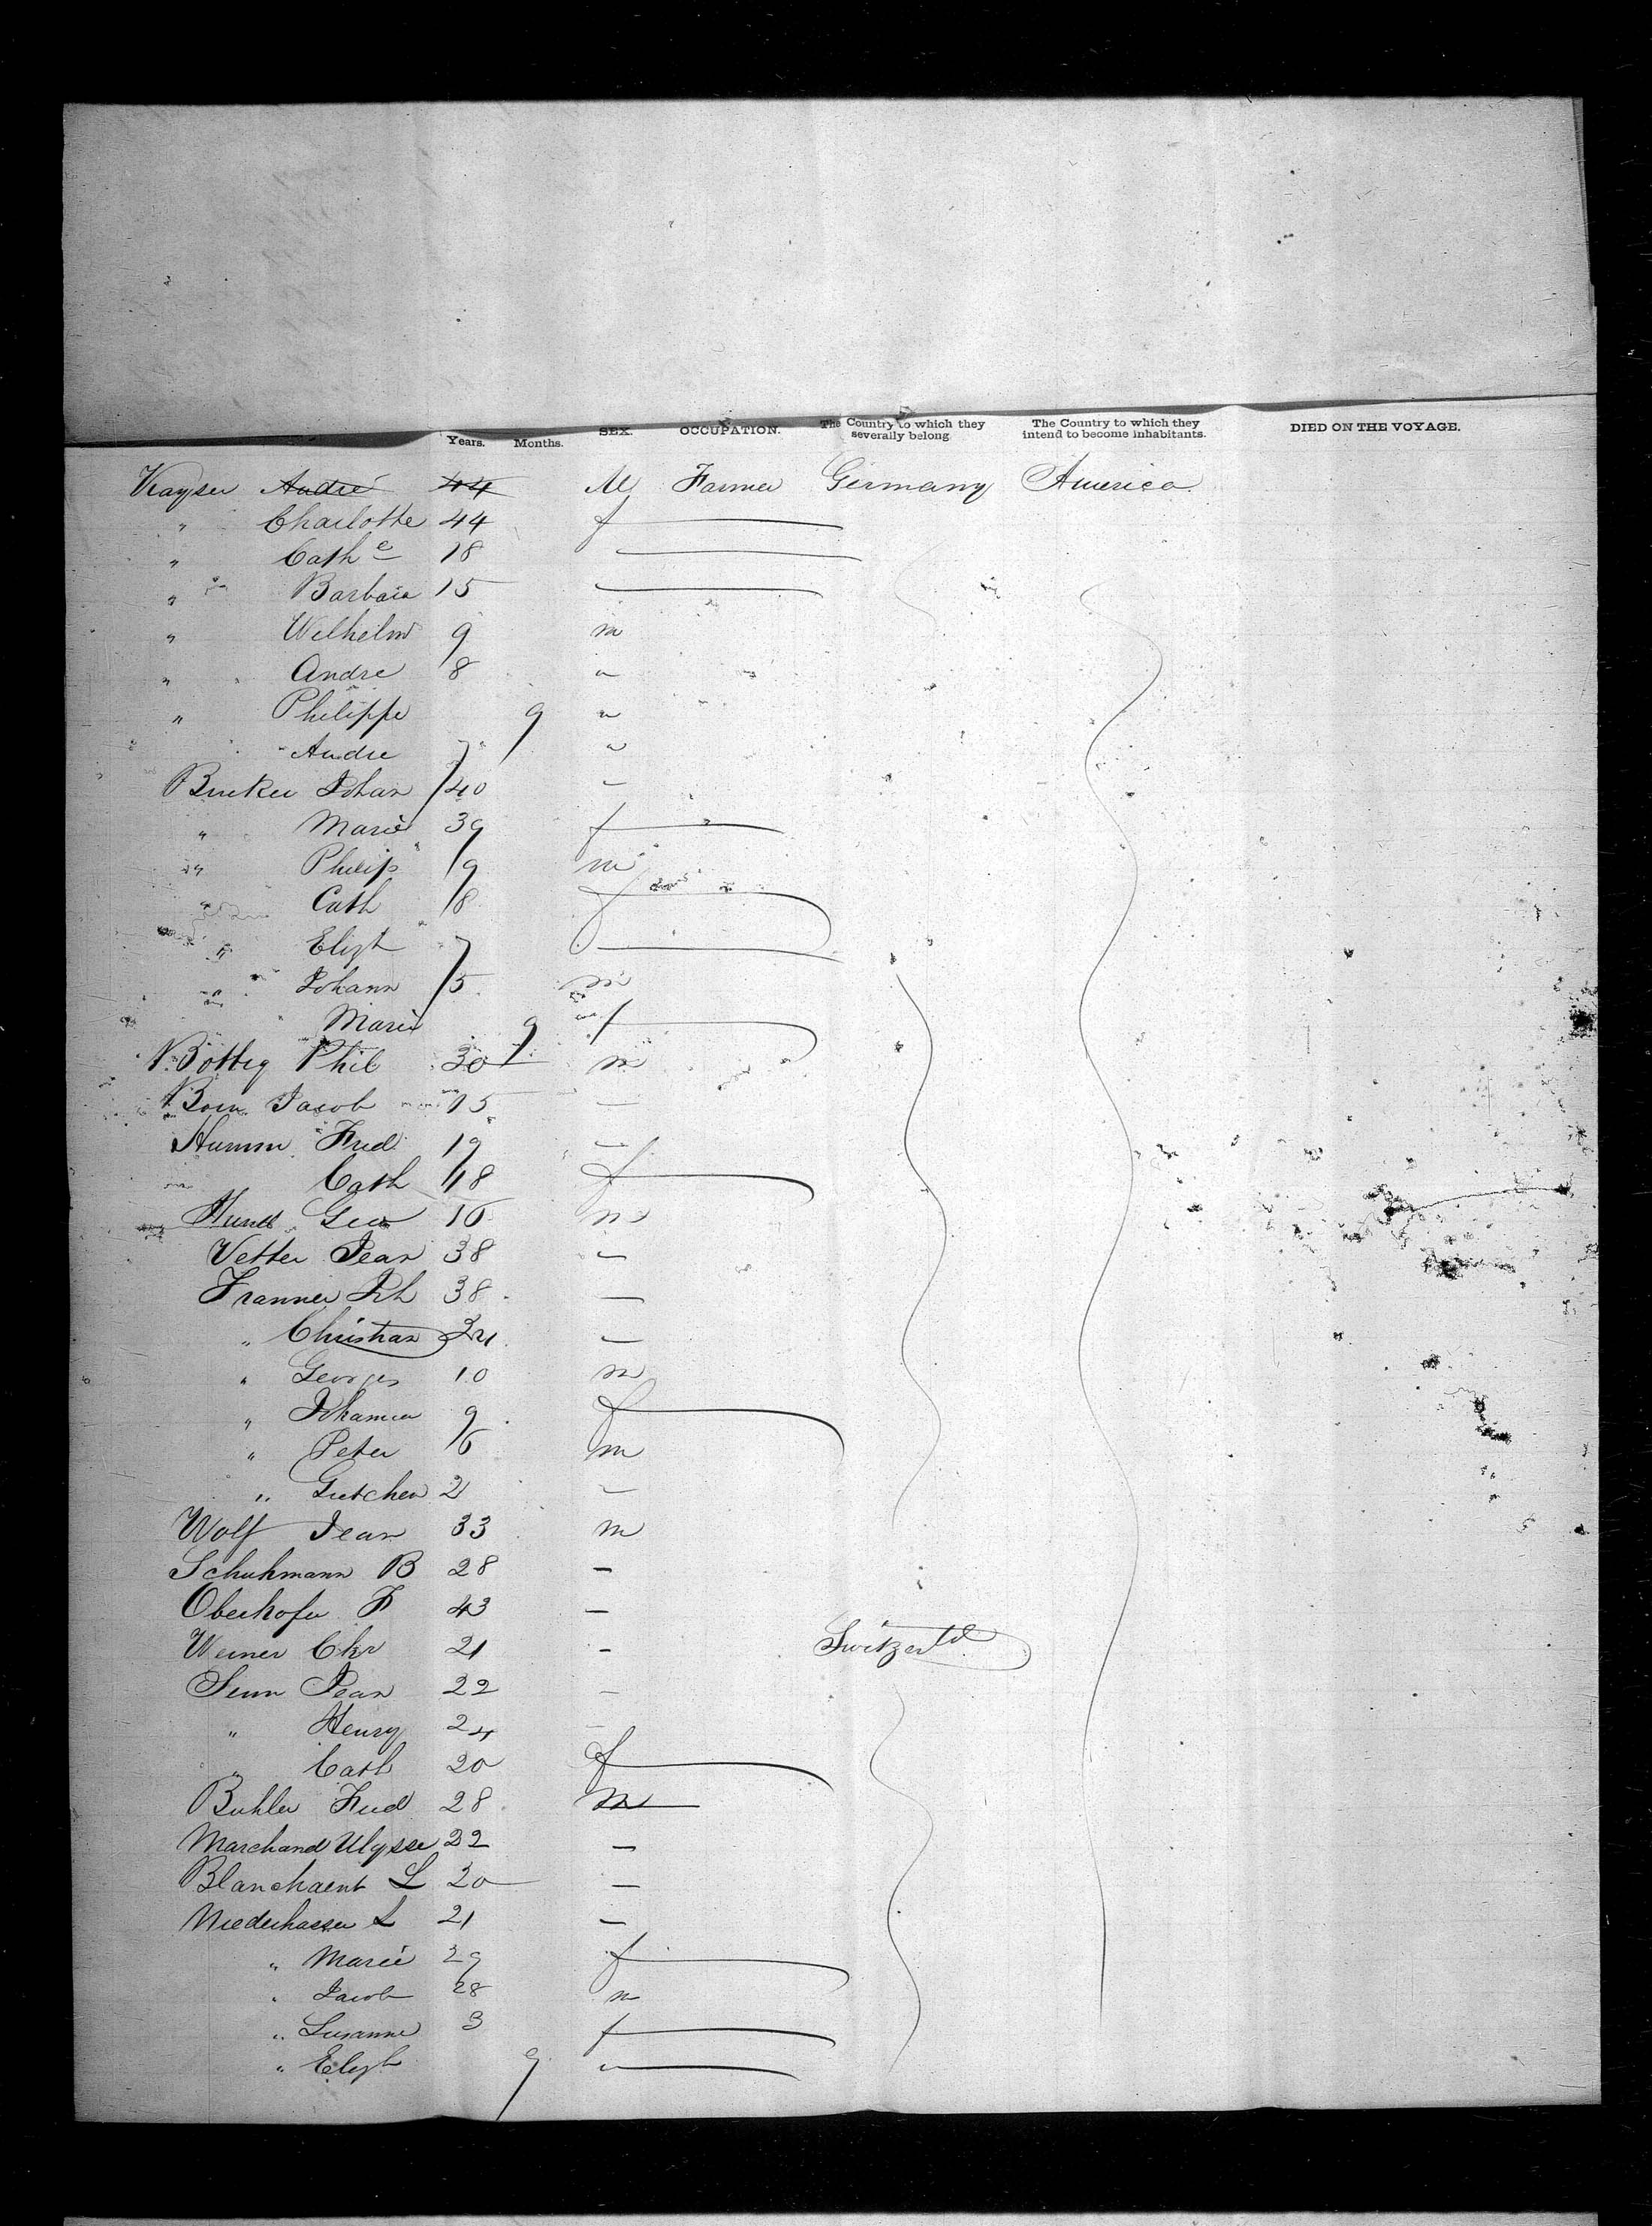 Years. Months. SEX. OCCUPATION. The Country to which they severally belong The Country to which they intend to become inhabitants. DIED ON THE VOYAGE.
Kayser André 44 M Farmer Germany America
" Charlotte 44 f
" Cath e 18
" Barbara 15
" Wilhelm 9 m
" Andre 8 "
" Philippe 9 "
" Andre 7 "
Johan 40 -
" Marie 39 f
" Philip 9 m
" Cath 8 f
" Elizt 7
" Johann 5 m
" Marie 9 f
Bottig Phil 30 m
Born Jacob 15 -
Humm Fred 19 -
Cath 18 f
Hund Geo 16 m
Vetter Jean 38 -
38 -
" Christian -
" Georges 10 m
" Johanna 9 f
" Peter 6 m
" Gretchen 2 -
Wolf Jean 33 m
Schuhmann B 28 -
Oberhofer F 43 -
Werner Chr 21 - Switzerld
Senn Jean 22 -
" Henry 24 -
" Cath 20 f
Buhler Fred 28 m
Marchand Ulysse 22 -
L 20 -
L 21 -
" Marie 29 f
" Jacob 28 m
" Susanne 3 f
" Elizh 9 "